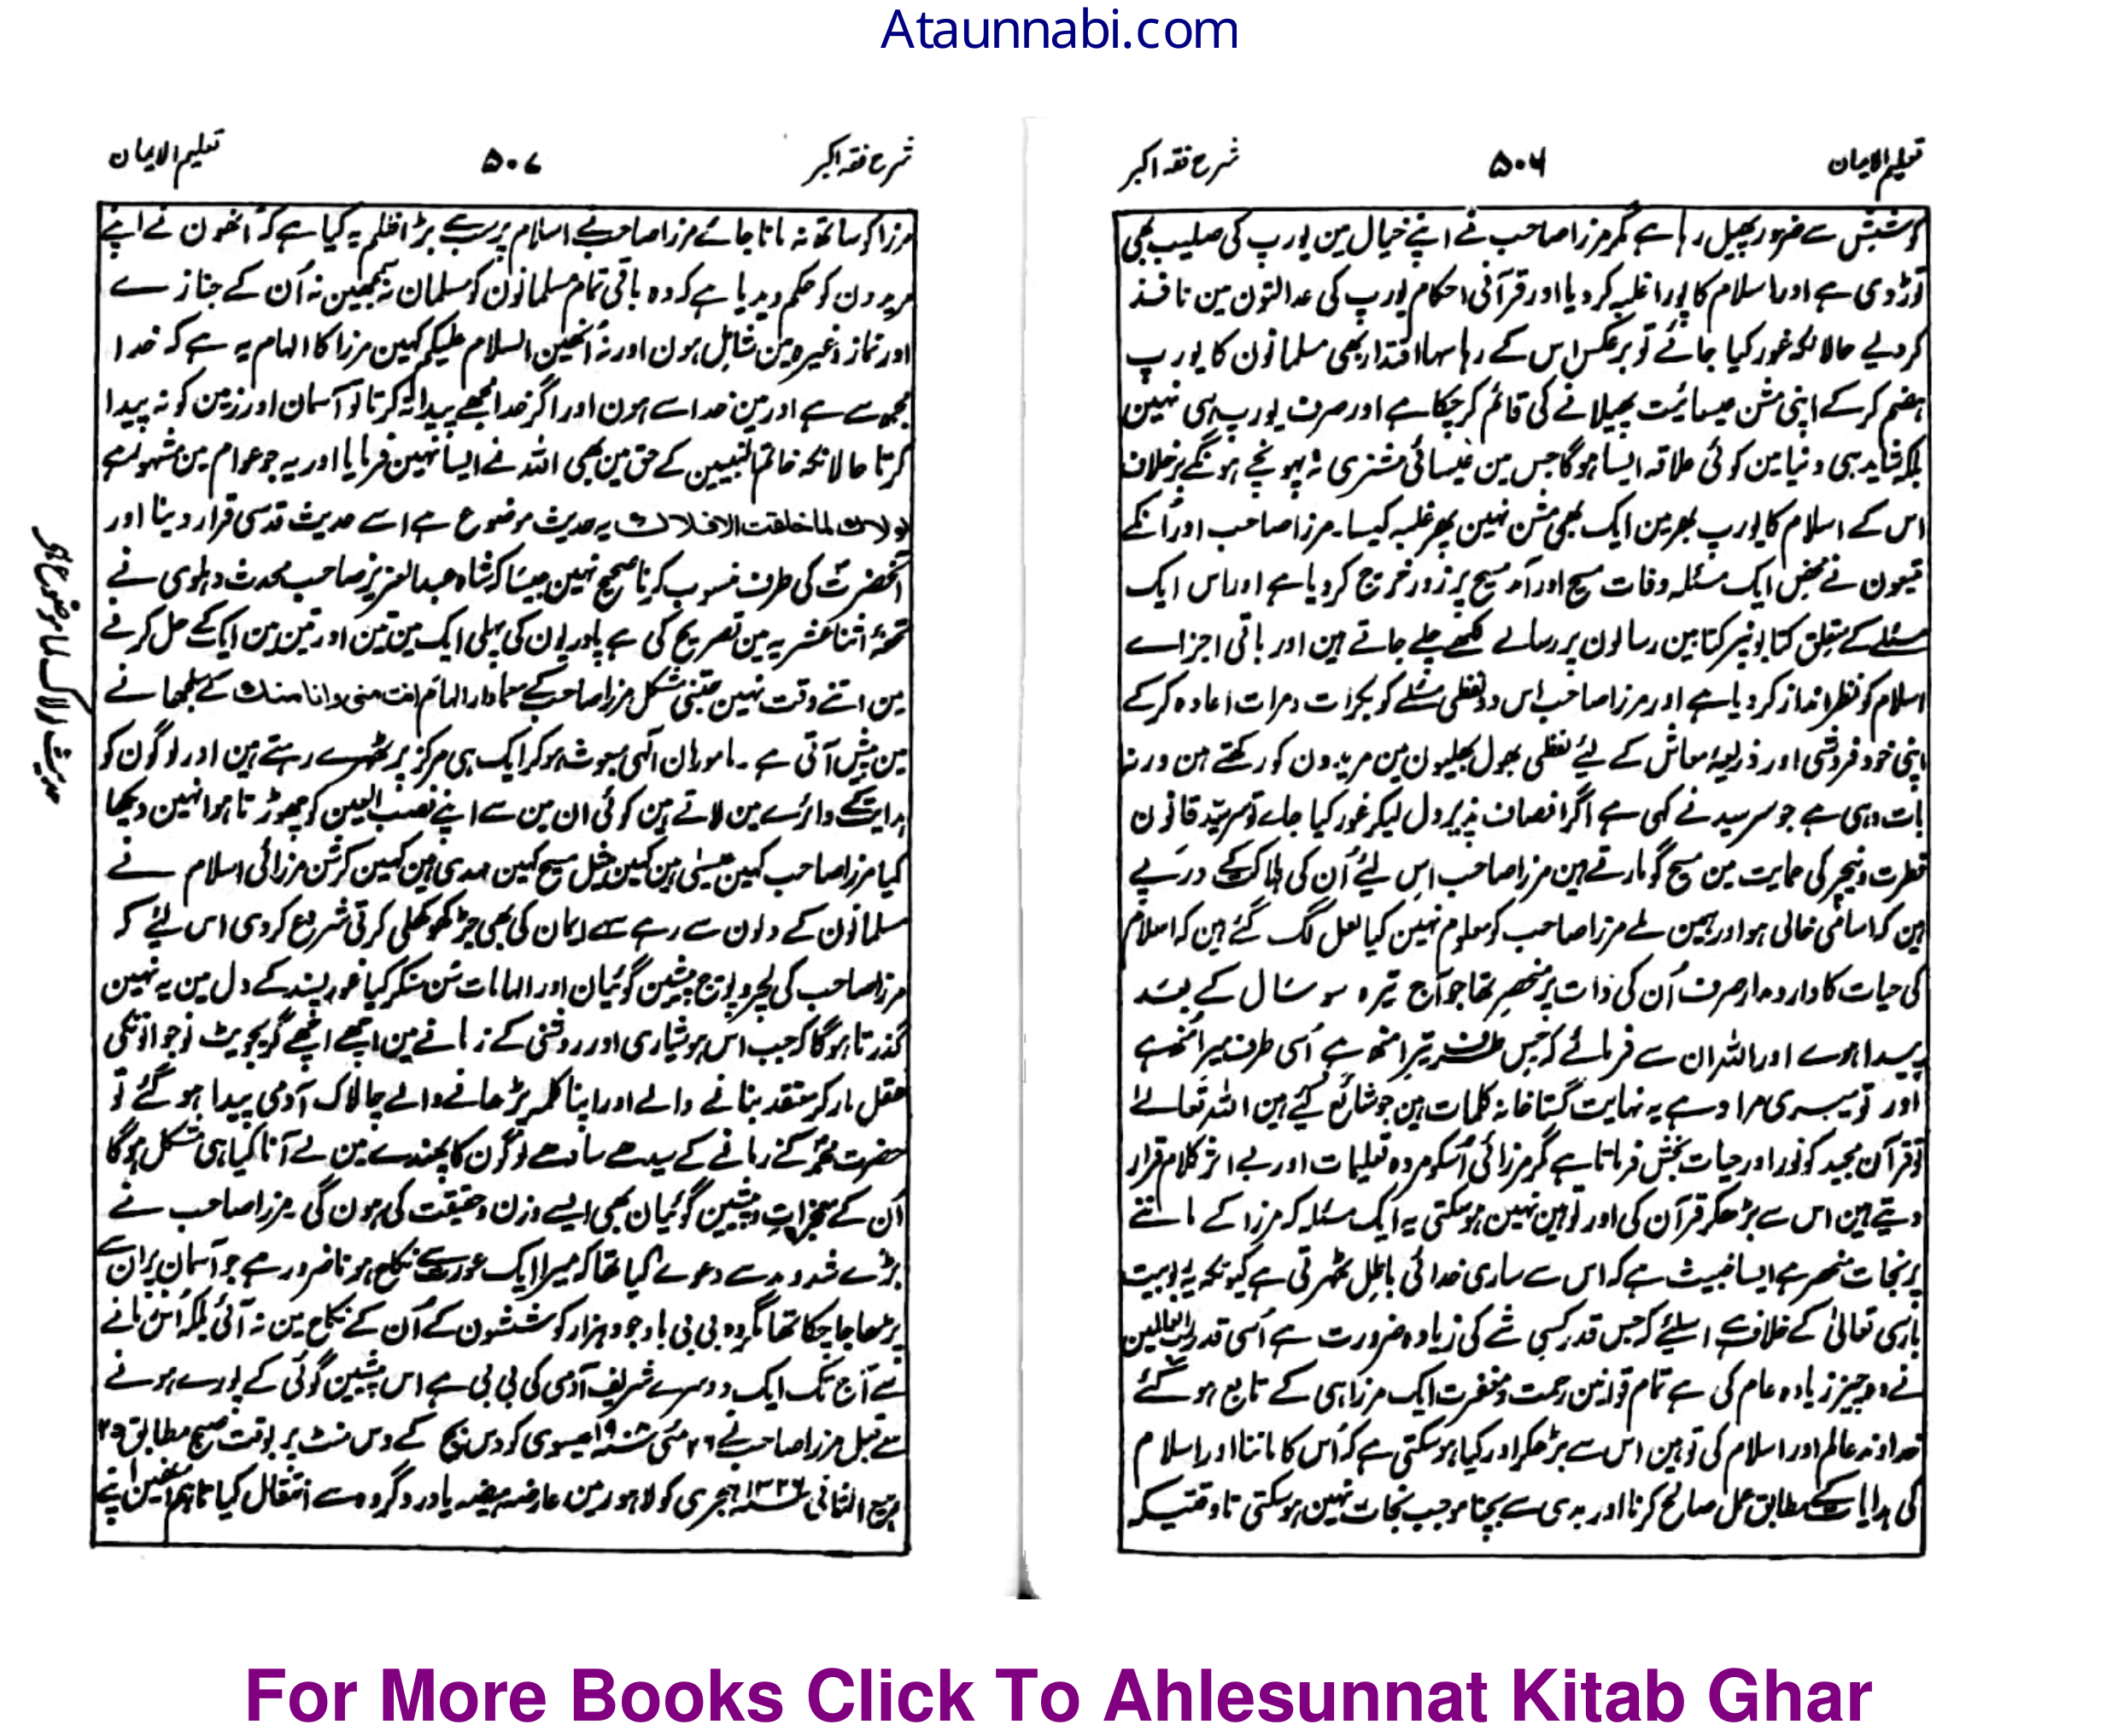 Ataunnabi.com
تعلیم الایمان
۵۰۶
شرح فقہ اکبر
کوشش سے ضرور پھیل رہا ہے مگر مرزا صاحب نے اپنے خیال مین یورپ کی صلیب بھی
توڑ دی ہے اور اسلام کا پورا غلبہ کر دیا اور قرآنی احکام یورپ کی عدالتون مین نافذ
کر دیے حالانکہ غور کیا جائے تو برعکس اس کے رہا سہا اقتدار بھی مسلمانون کا یورپ
ہضم کر کے اپنی مشن عیسائیت پھیلانے کی قائم کر چکا ہے اور صرف یورپ ہی نہین
بلکہ شاید ہی دنیا مین کوئی علاقہ ایسا ہوگا جس مین عیسائی مشنری نہ پہونچے ہونگے برخلاف
اس کے اسلام کا یورپ بھر مین ایک بھی مشن نہین پھر غلبہ کیسا۔ مرزا صاحب اور اُنکے
متبعون نے محض ایک مسئلہ وفات مسیح اور آمد مسیح پر زور خرچ کر دیا ہے اور اس ایک
مسئلے کے متعلق کتابونپر کتابین رسالون پر رسالے لکھے چلے جاتے ہین اور باقی اجزاے
اسلام کو نظر انداز کر دیا ہے اور مرزا صاحب اس دو لفظی مسئلے کو بکرات و مرات اعادہ کر کے
اپنی خود فروشی اور ذریعۂ معاش کے لیے لفظی بھول بھلیون مین مریدون کو رکھتے ہین ورنہ
بات وہی ہے جو سر سید نے کہی ہے اگر انصاف پذیر دل لیکر غور کیا جاے تو سر سید قانون
فطرت و نیچر کی حمایت مین مسیح کو مارتے ہین مرزا صاحب اس لیے اُن کی ہلاکت کے درپے
ہین کہ اسامی خالی ہو اور ہمین ملے مرزا صاحب کو معلوم نہین کیا لعل لگ گئے ہین کہ اسلام
کی حیات کا دارومدار صرف اُن کی ذات پر منحصر تھا جو آج تیرہ سو سال کے بعد
پیدا ہوے اور اللہ ان سے فرمائے کہ جس طرف تیرا منھ ہے اُسی طرف میرا منھ ہے
اور تو میری مراد ہے یہ نہایت گستاخانہ کلمات ہین جو شائع کیے ہین اللہ تعالےٰ
تو قرآن مجید کو نور اور حیات بخش فرماتا ہے مگر مرزائی اُسکو مردہ تعلیمات اور بے اثر کلام قرار
دیتے ہین اس سے بڑھکر قرآن کی اور توہین نہین ہو سکتی یہ ایک مسئلہ کہ مرزا کے ماننے
پر نجات منحصر ہے ایسا خبیث ہے کہ اس سے ساری خدائی باطل ٹھہرتی ہے کیونکہ یہ ربوبیت
باری تعالیٰ کے خلاف ہے اسلیے کہ جس قدر کسی شے کی زیادہ ضرورت ہے اُسی قدر رب العالمین
نے وہ چیز زیادہ عام کی ہے تمام قوانین رحمت و مغفرت ایک مرزا ہی کے تابع ہو گئے
خداوند عالم اور اسلام کی توہین اس سے بڑھکر اور کیا ہو سکتی ہے کہ اُس کا ماننا اور اسلام
کی ہدایات کے مطابق عمل صالح کرنا اور بدی سے بچنا موجب نجات نہین ہو سکتی تاوقتیکہ
شرح فقہ اکبر
۵۰۷
تعلیم الایمان
مرزا کو ساتھ نہ مانا جائے مرزا صاحب نے اسلام پر سب سے بڑا ظلم یہ کیا ہے کہ اُنھون نے اپنے
مریدون کو حکم دیدیا ہے کہ وہ باقی تمام مسلمانون کو مسلمان نہ سمجھین نہ اُن کے جنازے
اور نماز وغیرہ مین شامل ہون اور نہ اُنھین السلام علیکم کہین مرزا کا الہام یہ ہے کہ خدا
مجھ سے ہے اور مین خدا سے ہون اور اگر خدا مجھے پیدا نہ کرتا تو آسمان اور زمین کو نہ پیدا
کرتا حالانکہ خاتم النبیین کے حق مین بھی اللہ نے ایسا نہین فرمایا اور یہ جو عوام مین مشہور ہے
لولاك لما خلقت الافلاك یہ حدیث موضوع ہے اسے حدیث قدسی قرار دینا اور
آنحضرتؐ کی طرف منسوب کرنا صحیح نہین جیسا کہ شاہ عبدالعزیز صاحب محدث دہلوی نے
تحفۂ اثنا عشریہ مین تصریح کی ہے پادریون کی پہلی ایک مین تین اور تین مین ایک کے حل کرنے
مین اتنے وقت نہین جتنی مشکل مرزا صاحب کے معاوار الہام انت منی وانا منك کے سلجھانے
مین پیش آتی ہے۔ ماموران الٰہی مبعوث ہوکر ایک ہی مرکز پر ٹھہرے رہتے ہین اور لوگون کو
ہدایت کے دائرے مین لاتے ہین کوئی ان مین سے اپنے نصب العین کو چھوڑتا ہوا نہین دیکھا
گیا مرزا صاحب کہین عیسیٰ ہین کہین مثیل مسیح کہین مہدی ہین کہین کرشن مرزائی اسلام نے
مسلمانون کے دلون سے رہے سہے ایمان کی بھی جڑ کھوکھلی کرتی شروع کردی اس لیے کہ
مرزا صاحب کی لچر و پوچ پیشین گوئیان اور الہامات سُن سُنکر کیا غور پسند کے دل مین یہ نہین
گذرتا ہوگا کہ جب اس ہوشیاری اور روشنی کے زمانے مین اچھے اچھے گریجویٹ نوجوانونکی
عقل مار کر معتقد بنانے والے اور اپنا کلمہ پڑھانے والے چالاک آدمی پیدا ہو گئے تو
حضرت محمدؐ کے زمانے کے سیدھے سادھے لوگون کا پھندے مین لے آنا کیا ہی مشکل ہوگا
اُن کے معجزات و پیشین گوئیان بھی ایسے وزن و حقیقت کی ہون گی۔ مرزا صاحب نے
بڑے شد و مد سے دعوے کیا تھا کہ میرا ایک عورت سے نکاح ہونا ضرور ہے جو آسمان پر ان سے
پڑھا جا چکا تھا مگر وہ بی بی باوجود ہزار کوششون کے اُن کے نکاح مین نہ آئی بلکہ اُس زمانے
سے آج تک ایک دوسرے شریف آدمی کی بی بی ہے اس پیشین گوئی کے پورے ہونے
سے قبل مرزا صاحب نے ۲۶ مئی ۱۹۰۸ عیسوی کو دس بج کے دس منٹ پر بوقت صبح مطابق ۲۵
ربیع الثانی ۱۳۲۶ ہجری کو لاہور مین عارضہ ہیضہ یا درد گردہ سے انتقال کیا تاہم اُنھین اپنے
حدیث لولاک لما موضوع ہے
For More Books Click To Ahlesunnat Kitab Ghar